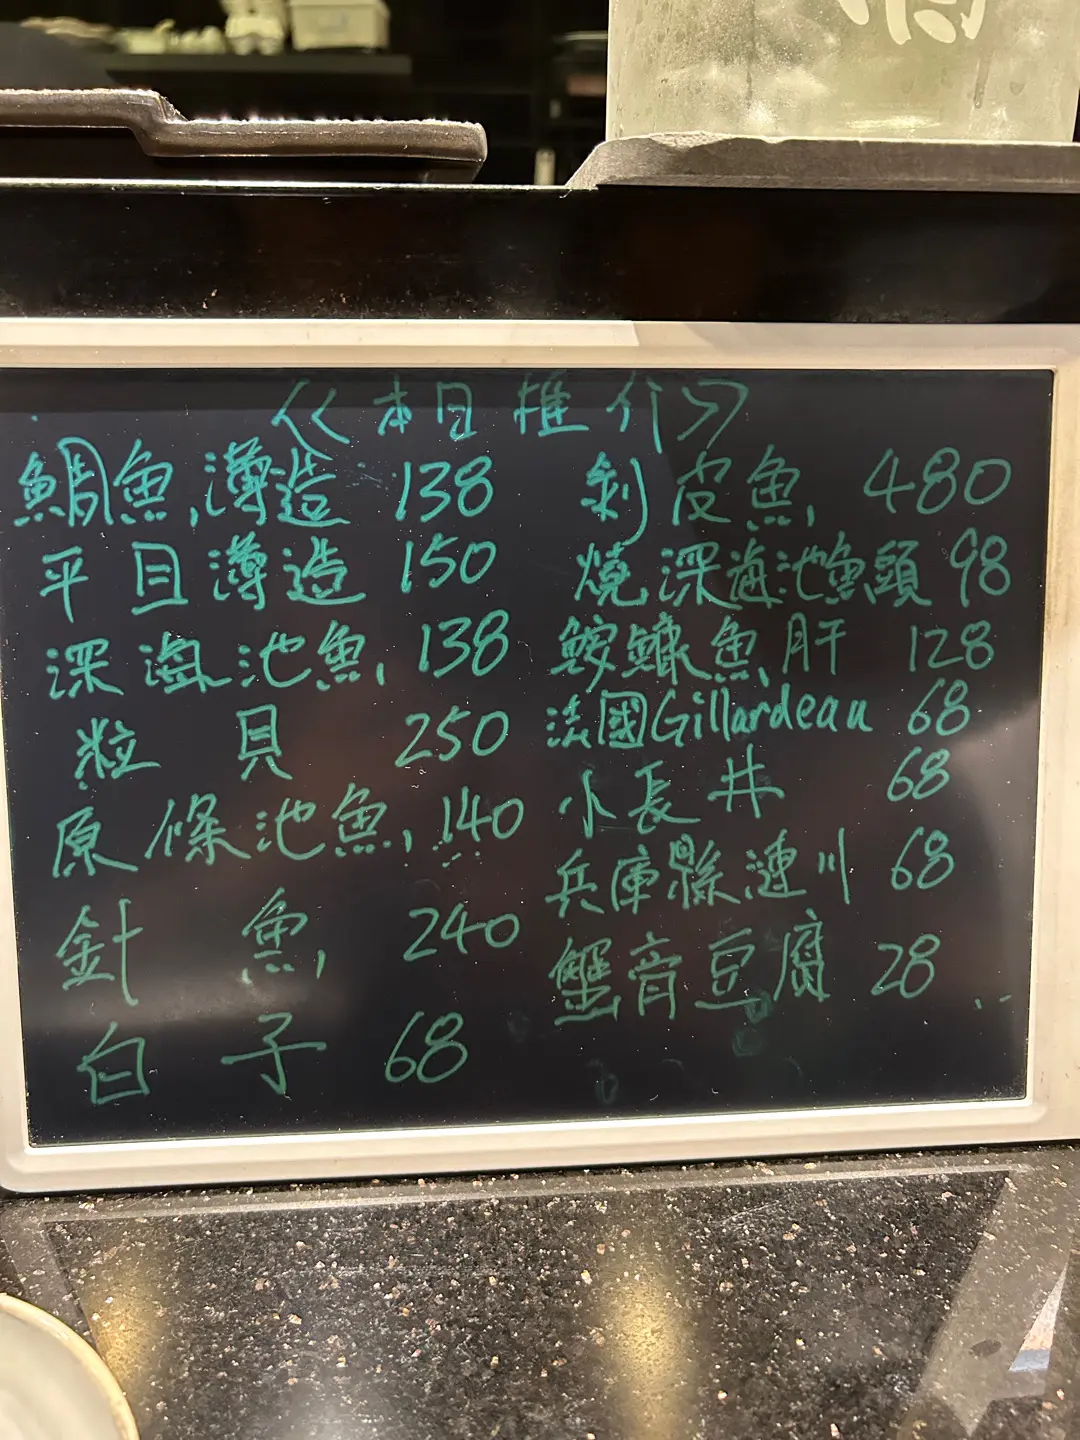 《本日推介》
鯛魚薄造 138
平目薄造 150
深海池魚 138
粒貝 250
原條池魚 140
針魚 240
白子 68
剝皮魚 480
燒深海池魚頭 98
鮟鱇魚肝 128
法國Gillardeau 68
小長井 68
兵庫縣漣川 68
蟹膏豆腐 28